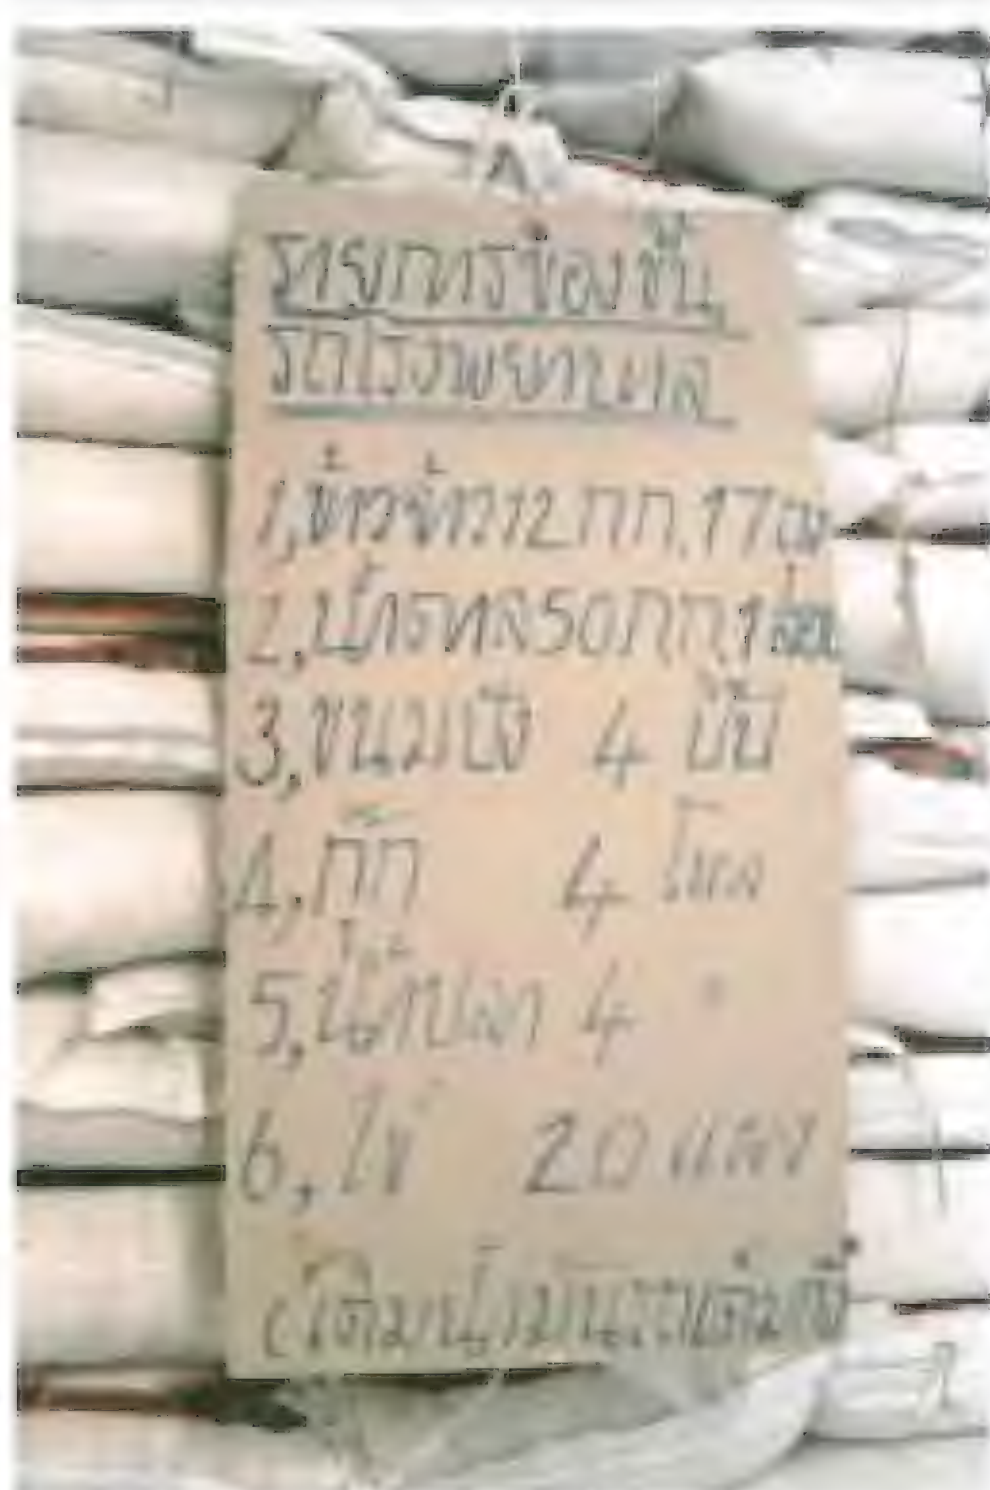 รายการของขึ้น
รถโรงพยาบาล
1,ข้าวข้าว12 กก.17
2,น้ำตาล50กก,1
3,ขนมปัง 4 ปี๊บ
4,กิ๊ก 4 โหล
5,น้ำปลา 4 "
6,ไข่ 20 แผง
เติมน้ำมันรถเต็มถัง